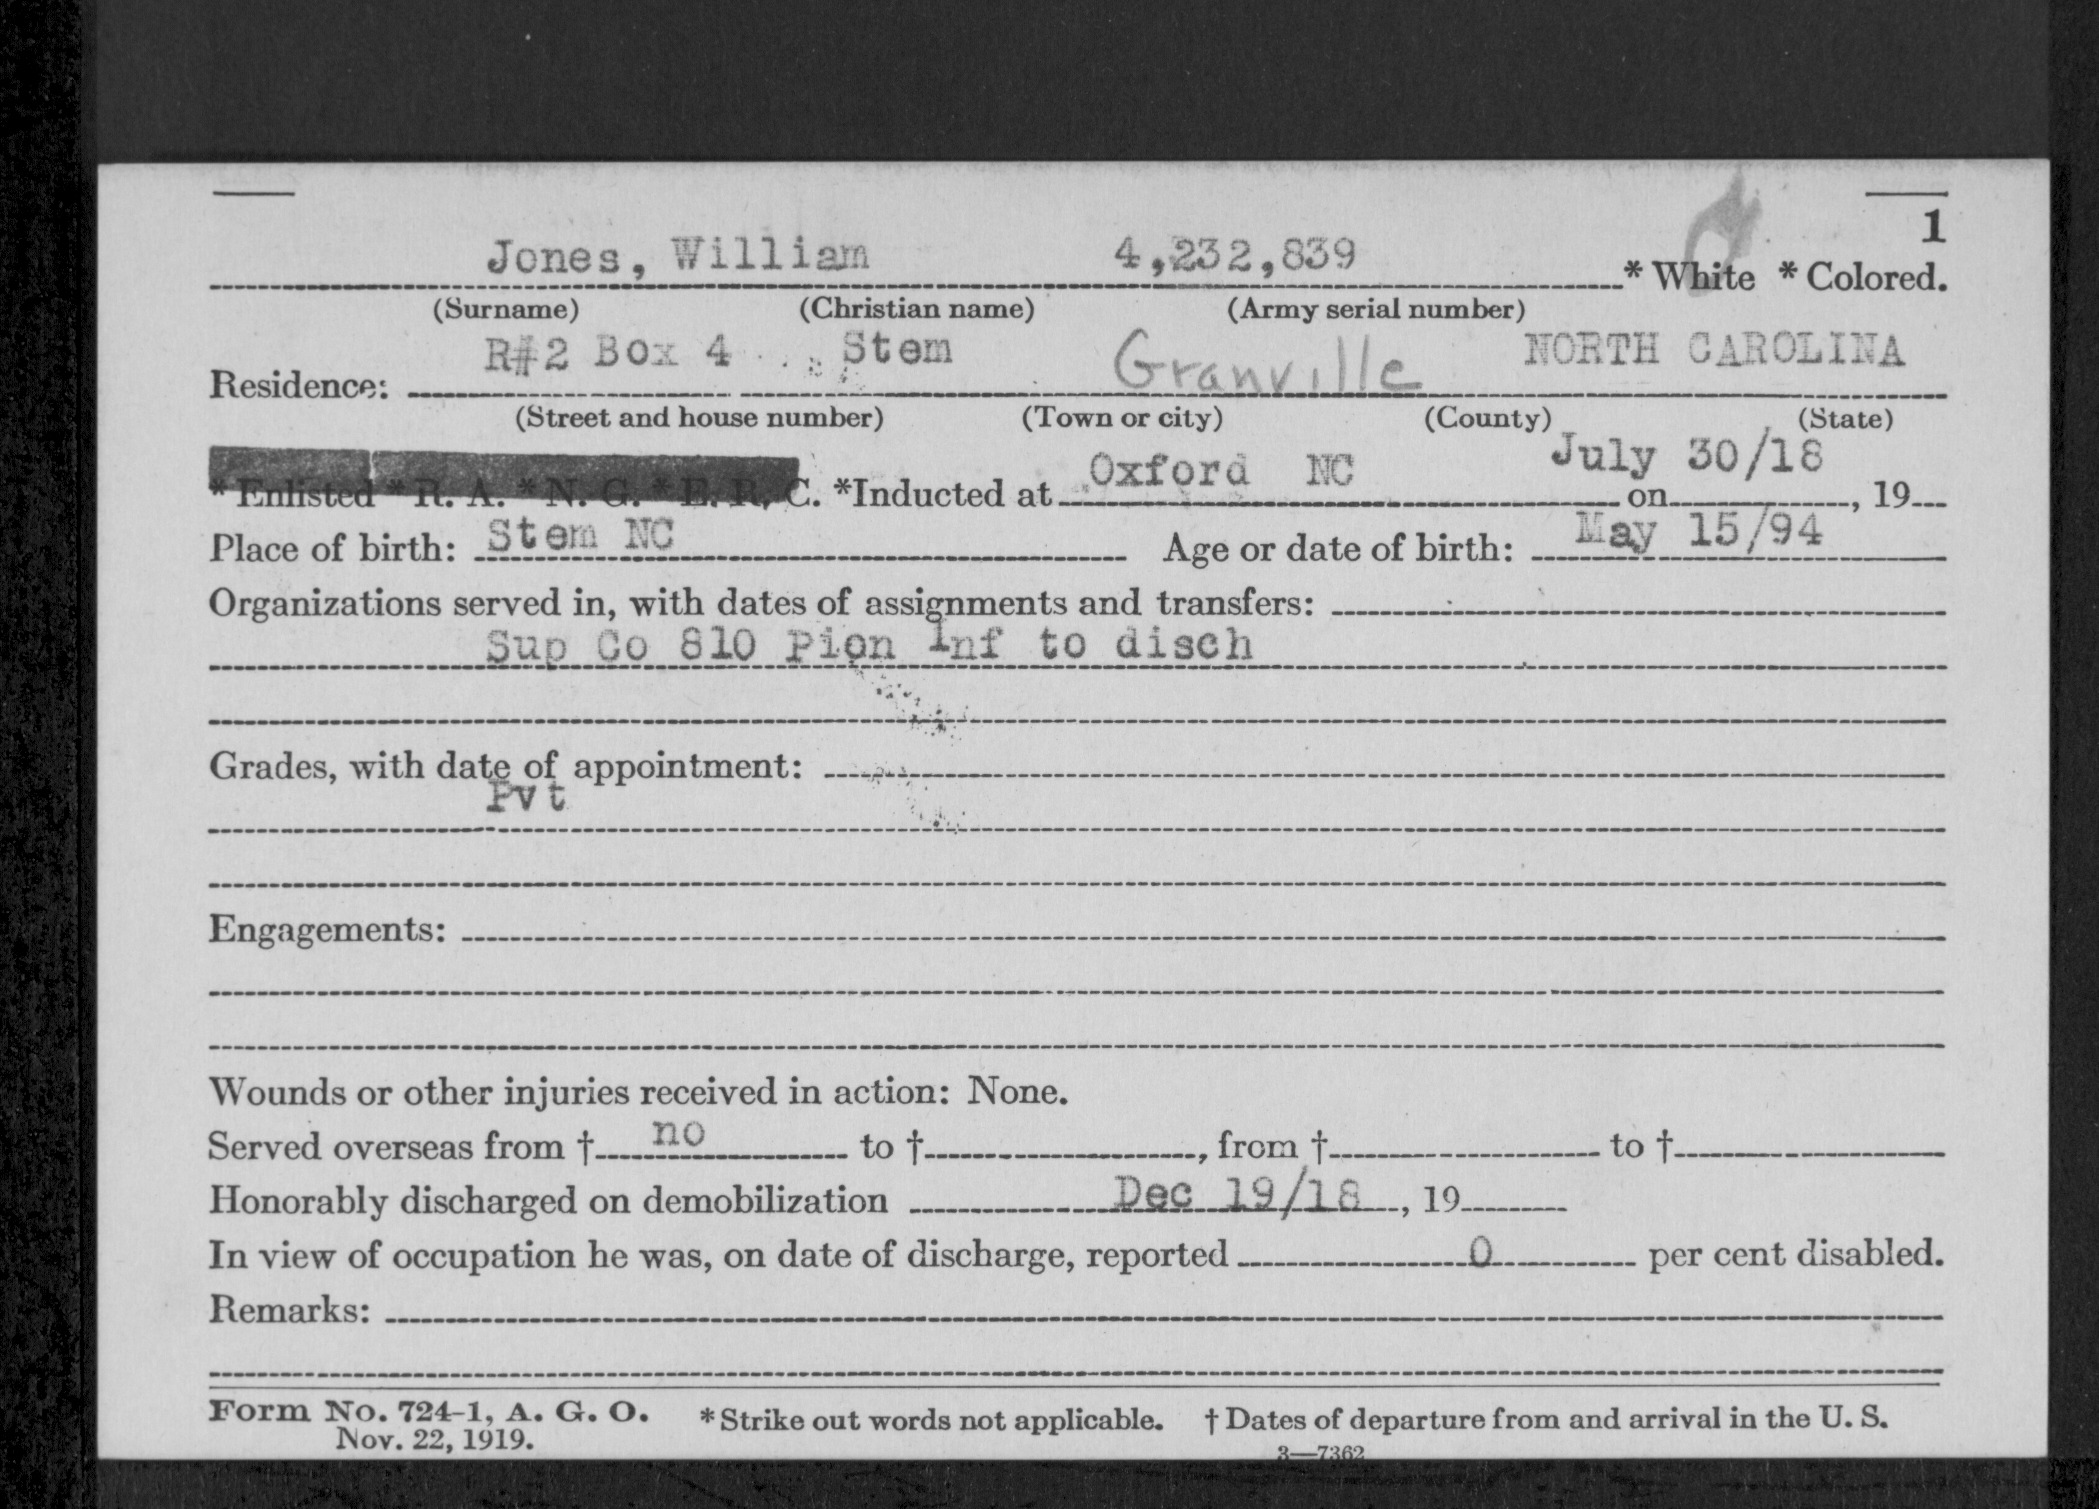 1
Jones, William 4,232,839 * White * Colored.
(Surname) (Christian name) (Army serial number)
Residence: R#2 Box 4 Stem Granville NORTH CAROLINA
(Street and house number) (Town or city) (County) (State)
* Enlisted * R. A. * N. G. * E. R. C. *Inducted at Oxford NC on July 30/18, 19
Place of birth: Stem NC Age or date of birth: May 15/94
Organizations served in, with dates of assignments and transfers:
Sup Co 810 Pion Inf to disch
Grades, with date of appointment:
Pvt
Engagements:
Wounds or other injuries received in action: None.
Served overseas from † no to †, from † to †
Honorably discharged on demobilization Dec 19/18, 19
In view of occupation he was, on date of discharge, reported 0 per cent disabled.
Remarks:
Form No. 724-1, A. G. O. * Strike out words not applicable. † Dates of departure from and arrival in the U. S.
Nov. 22, 1919.
3—7362